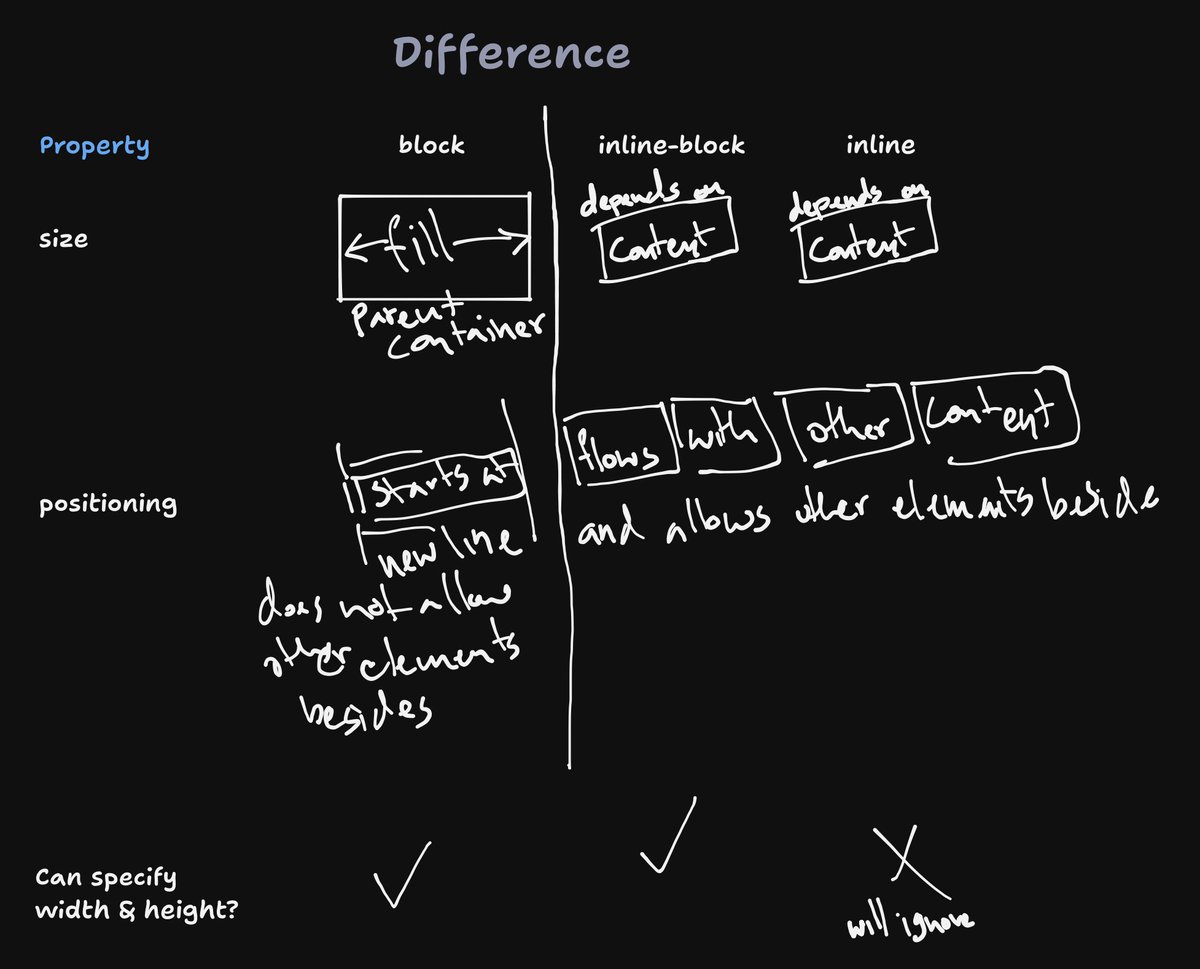 Difference
Property block inline-block inline
size
fill
parent
container
depends on
Content
depends on
Content
positioning
starts at
new line
does not allow
other elements
besides
flows with other content
and allows other elements beside
Can specify
width & height?
will ignore